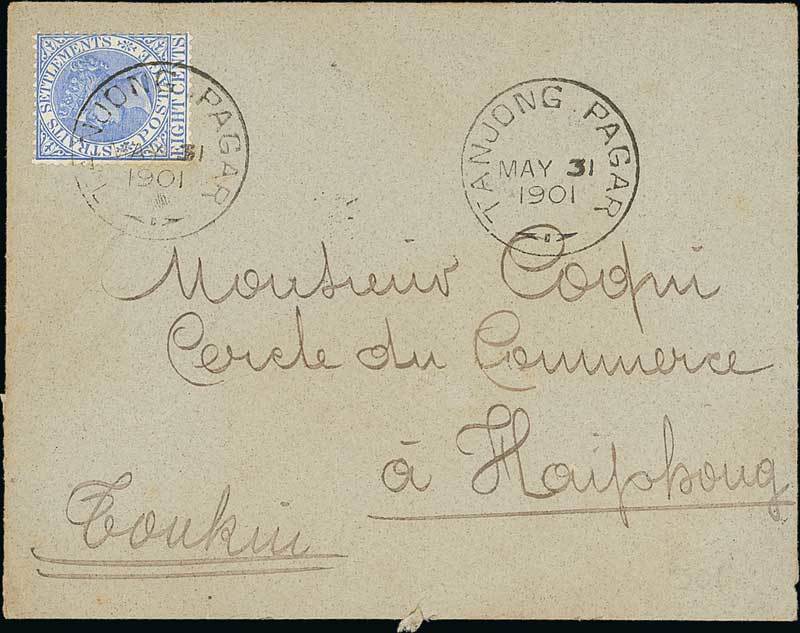 STRAITS SETTLEMENTS
POSTAGE
EIGHT CENTS
TANJONG PAGAR
MAY 31
1901
TANJONG PAGAR
MAY 31
1901
Monsieur Coqui
Cercle du Commerce
à Haiphong
Tonkin